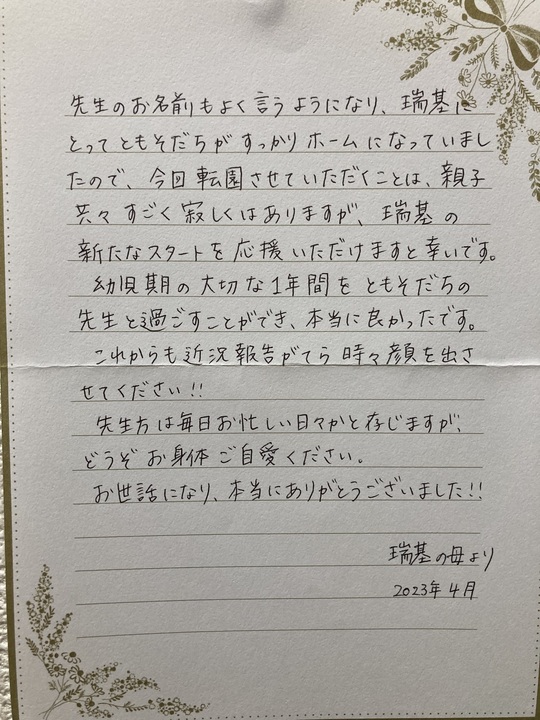 先生のお名前もよく言うようになり、瑞基に
とってともそだちがすっかりホームになっていまし
たので、今回転園させていただくことは、親子
共々すごく寂しくはありますが、瑞基の
新たなスタートを応援いただけますと幸いです。
幼児期の大切な1年間をともそだちの
先生と過ごすことができ、本当に良かったです。
これからも近況報告がてら時々顔を出さ
せてください!!
先生方は毎日お忙しい日々かと存じますが、
どうぞお身体ご自愛ください。
お世話になり、本当にありがとうございました!!
瑞基の母より
2023年4月